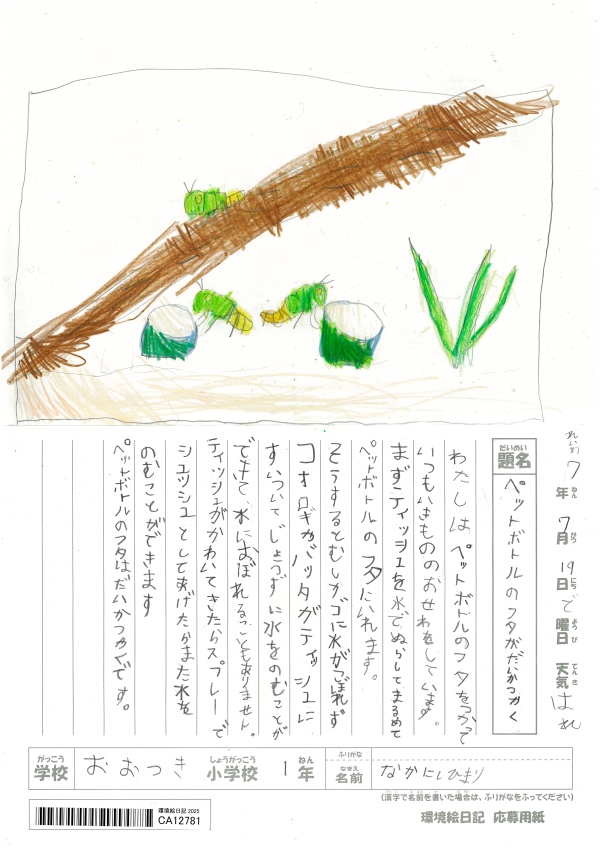 れいわ7年7月19日ど曜日 天気はれ
ねん がつ にち ようび てんき
だいめい
題名 ペットボトルのフタがだいかつやく
わたしはペットボトルのフタをつかって
いつもいきもののおせわをしています。
まずティッシュを水でぬらしてまるめて
ペットボトルのフタにいれます。
そうするとむしかごに水がこぼれず
コオロギやバッタがティッシュに
すいついてじょうずに水をのむことが
できて、水におぼれることもありません。
ティッシュがかわいてきたらスプレーで
シュッシュとしてあげたらまた水を
のむことができます
ペットボトルのフタはだいかつやくです。
がっこう しょうがっこう ねん ふりがな
学校 おおつき 小学校 1年 なまえ 名前 なかにしひまり
(漢字で名前を書いた場合は、ふりがなをふってください)
環境絵日記 応募用紙
環境絵日記 2025
CA12781